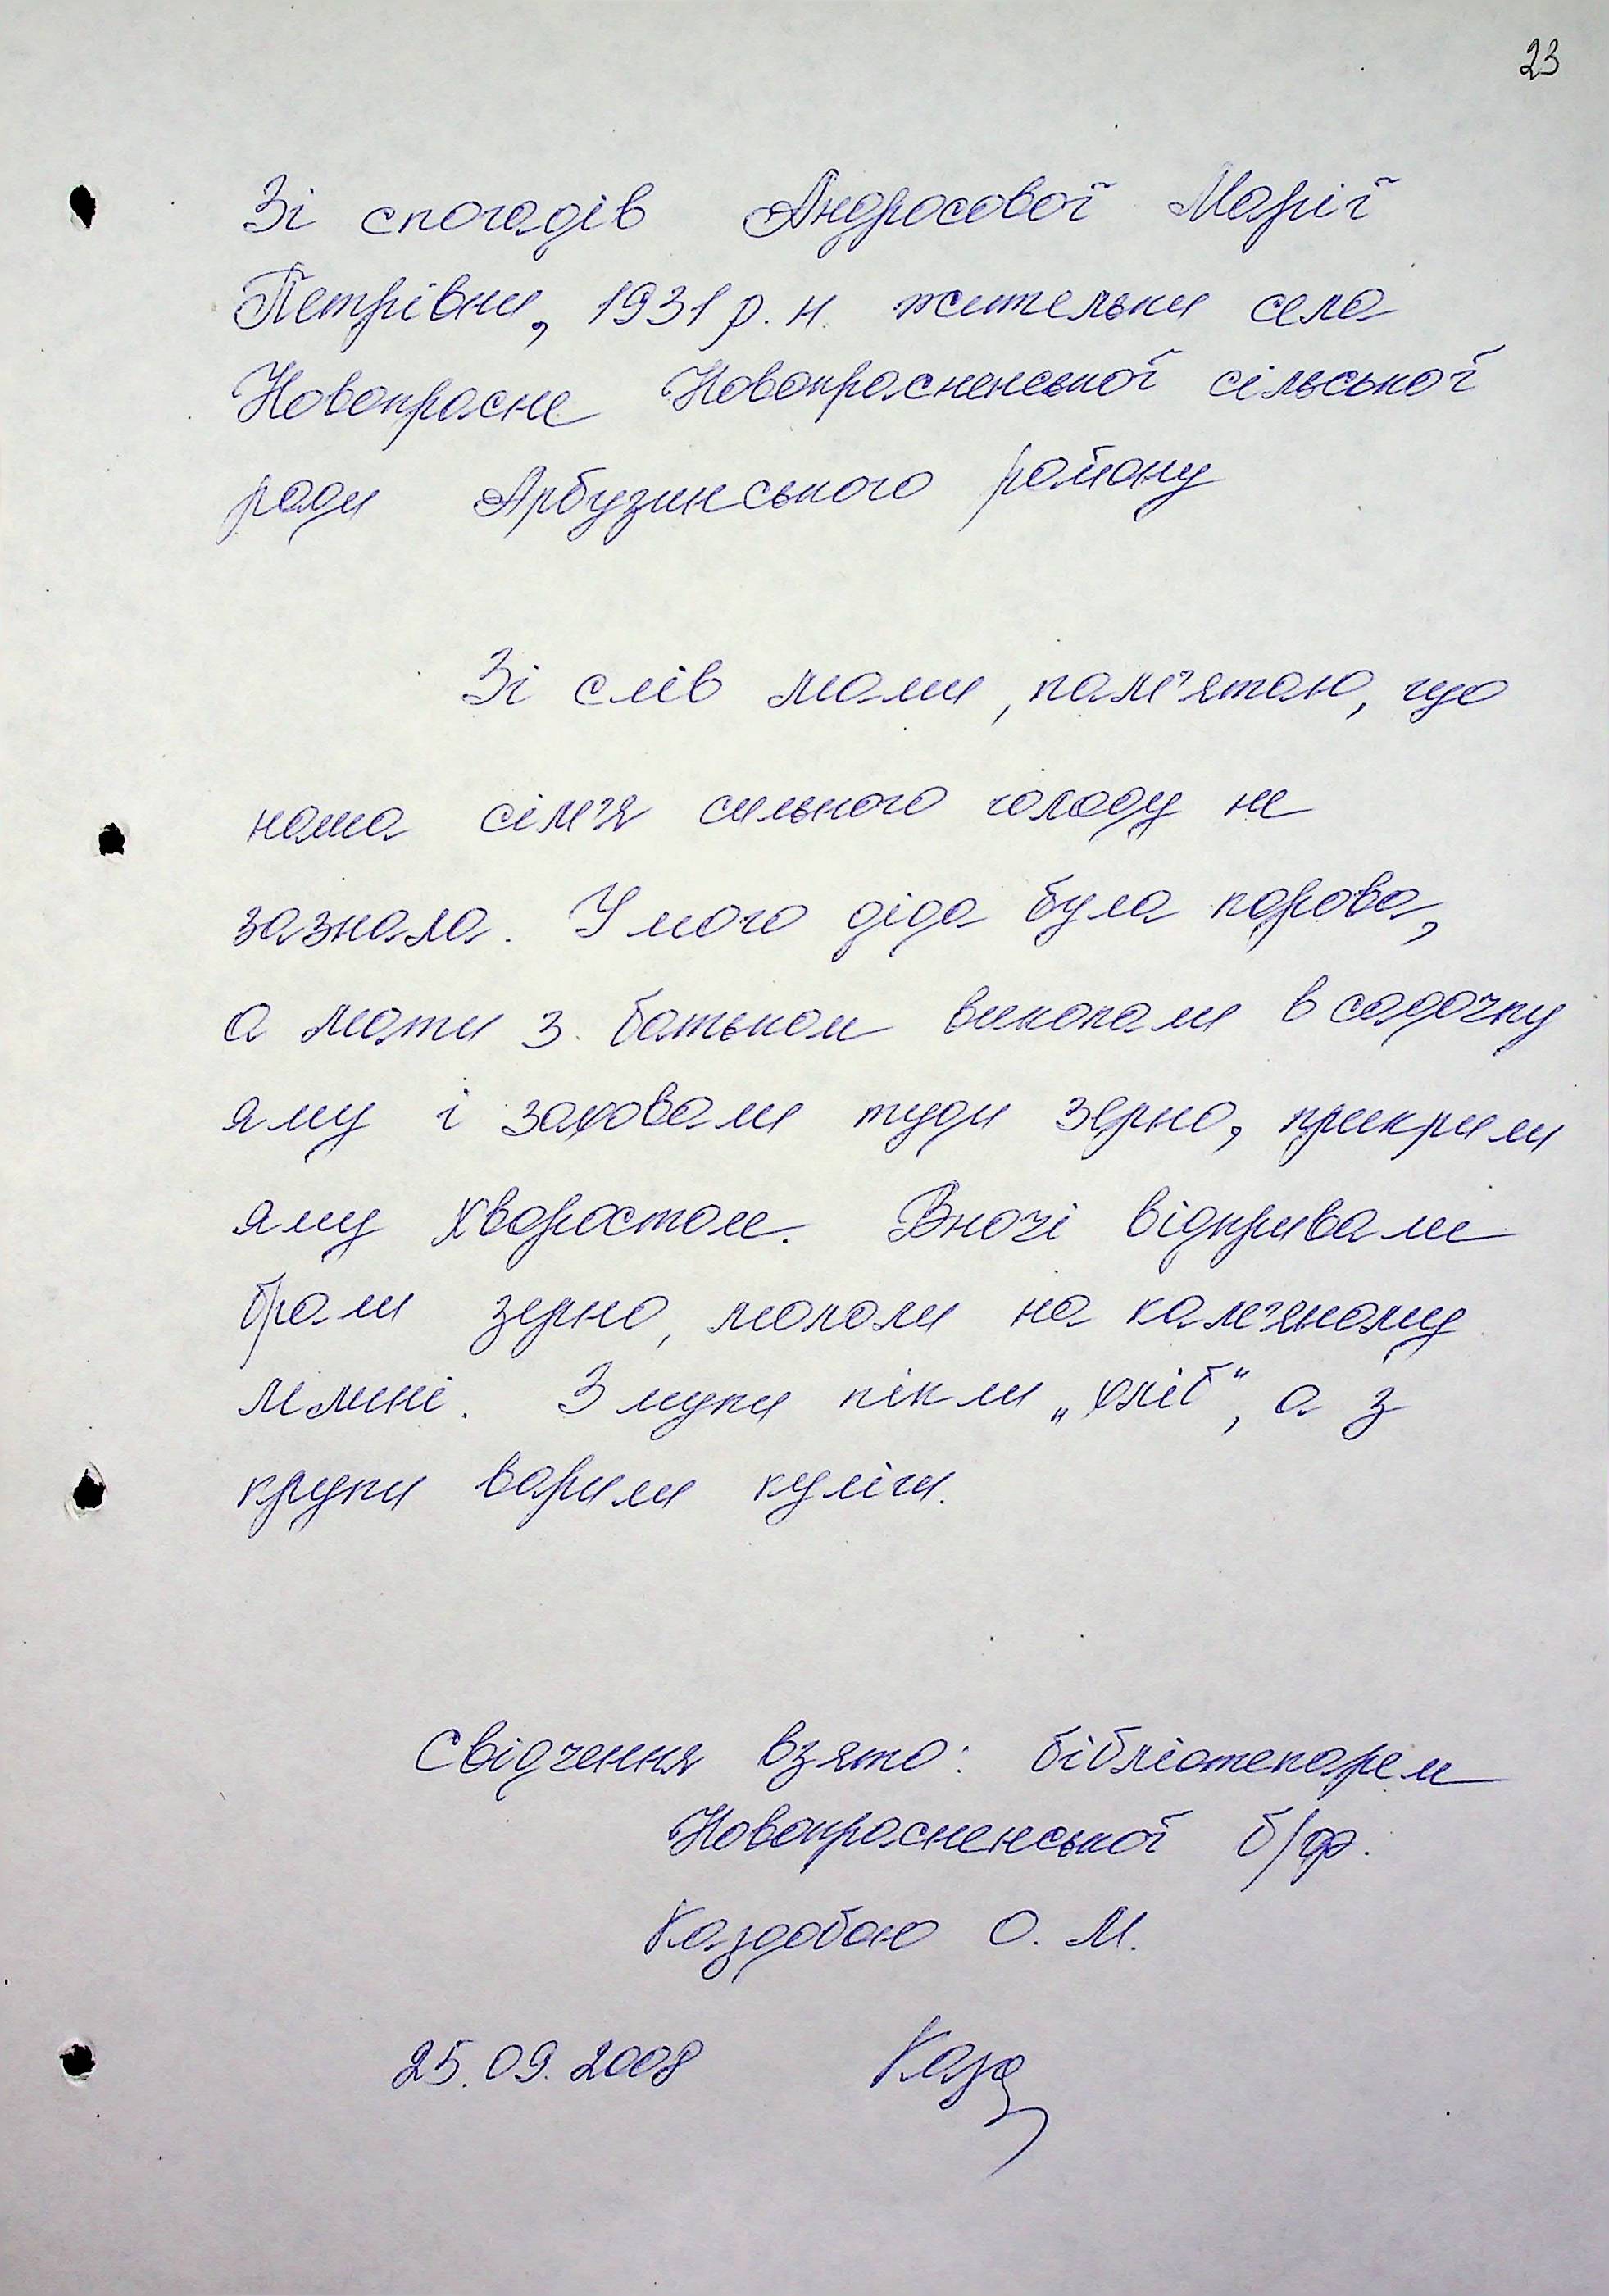 23
Зі спогадів Андросової Марії
Петрівни, 1931 р. н. жительки села
Новокрасне Новокрасненської сільської
ради Арбузинського району
Зі слів мами, пам'ятаю, що
наша сім'я сильного голоду не
зазнала. У мого діда була корова,
а мати з батьком викопали в садочку
яму і заховали туди зерно, прикрили
яму хворостом. Вночі відкривали
брали зерно, мололи на кам'яному
млині. З муки пікли „хліб“, а з
крупи варили куліш.
Свідчення взято: бібліотекарем
Новокрасненської б/ф.
Каздобою О. М.
25.09.2008 Казд